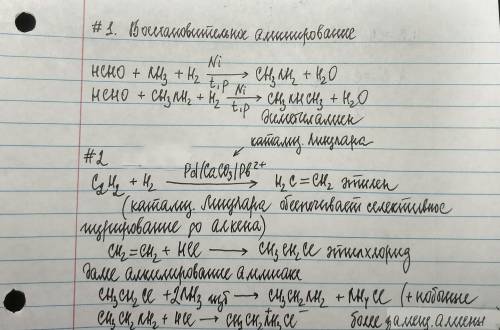 #1. Восстановительное аминирование
HCHO + NH₃ + H₂ —Ni/t,p→ CH₃NH₂ + H₂O
HCHO + CH₃NH₂ + H₂ —Ni/t,p→ CH₃NHCH₃ + H₂O
Диметиламин
катализ. Линдлара
#2
C₂H₂ + H₂ —Pd/CaCO₃/Pb²⁺→ H₂C=CH₂ этилен
(катализ. Линдлара обеспечивает селективное
гидрирование до алкена)
CH₂=CH₂ + HCl → CH₃CH₂Cl этилхлорид
Далее алкилирование аммиака
CH₃CH₂Cl + 2NH₃ → CH₃CH₂NH₂ + NH₄Cl (+ побочные
CH₃CH₂NH₂ + HCl → CH₃CH₂⁺NH₃Cl⁻ более замещ. амины